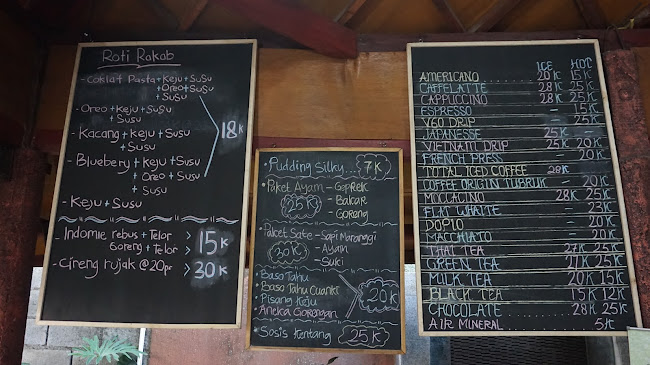 Roti Rakab
- Coklat Pasta + Keju + Susu
+ Oreo + Susu
+ Susu
- Oreo + Keju + Susu
+ Susu
- Kacang + Keju + Susu
- Bluebery + Keju + Susu
+ Oreo + Susu
+ Susu
18K
- Keju + Susu
- Indomie rebus + Telor
Goreng + Telor
15K
- Cireng rujak @20pc
30K
Pudding Silky... 7K
Paket Ayam - Geprek
- Bakar
- Goreng
Paket Sate - Sapi Maranggi
- Ayam
- Suki
30K
Baso Tahu
Baso Tahu Cuanki
Pisang Keju
Aneka Gorengan
20K
Sosis Kentang 25K
ICE HOT
AMERICANO 20K 15K
CAFFELATTE 28K 25K
CAPPUCCINO 28K 25K
ESPRESSO 15K
V60 DRIP - 25K
JAPANESSE 25K -
VIETNAM DRIP 25K 20K
FRENCH PRESS - 20K
TOTAL ICED COFFEE 28K
COFFEE ORIGIN TUBRUK - 20K
MOCCACINO 28K 25K
FLAT WHATTE - 23K
DOPIO - 20K
MACCHIATO - 20K
THAI TEA 27K 25K
GREEN TEA 27K 25K
MILK TEA 20K 15K
BLACK TEA 15K 12K
CHOCOLATE 28K 25K
AIR MINERAL 5K